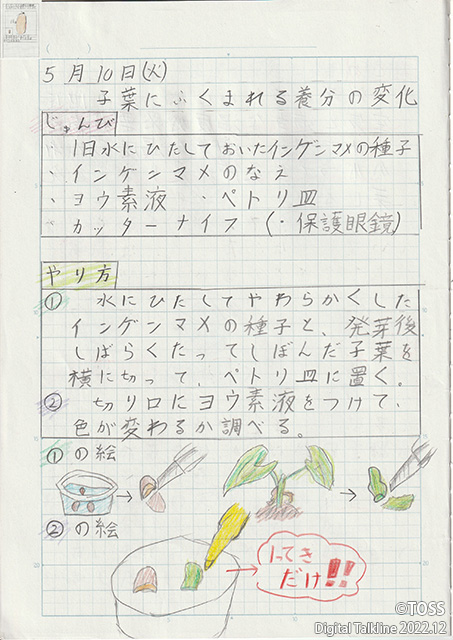 5月10日(火)
子葉にふくまれる養分の変化
じゅんび
・1日水にひたしておいたインゲンマメの種子
・インゲンマメのなえ
・ヨウ素液 ・ペトリ皿
・カッターナイフ (・保護眼鏡)
やり方
① 水にひたしてやわらかくした
インゲンマメの種子と、発芽後
しばらくたってしぼんだ子葉を
横に切って、ペトリ皿に置く。
② 切り口にヨウ素液をつけて、
色が変わるか調べる。
①の絵
②の絵
1てき
だけ!!
©TOSS
Digital Talkline 2022.12